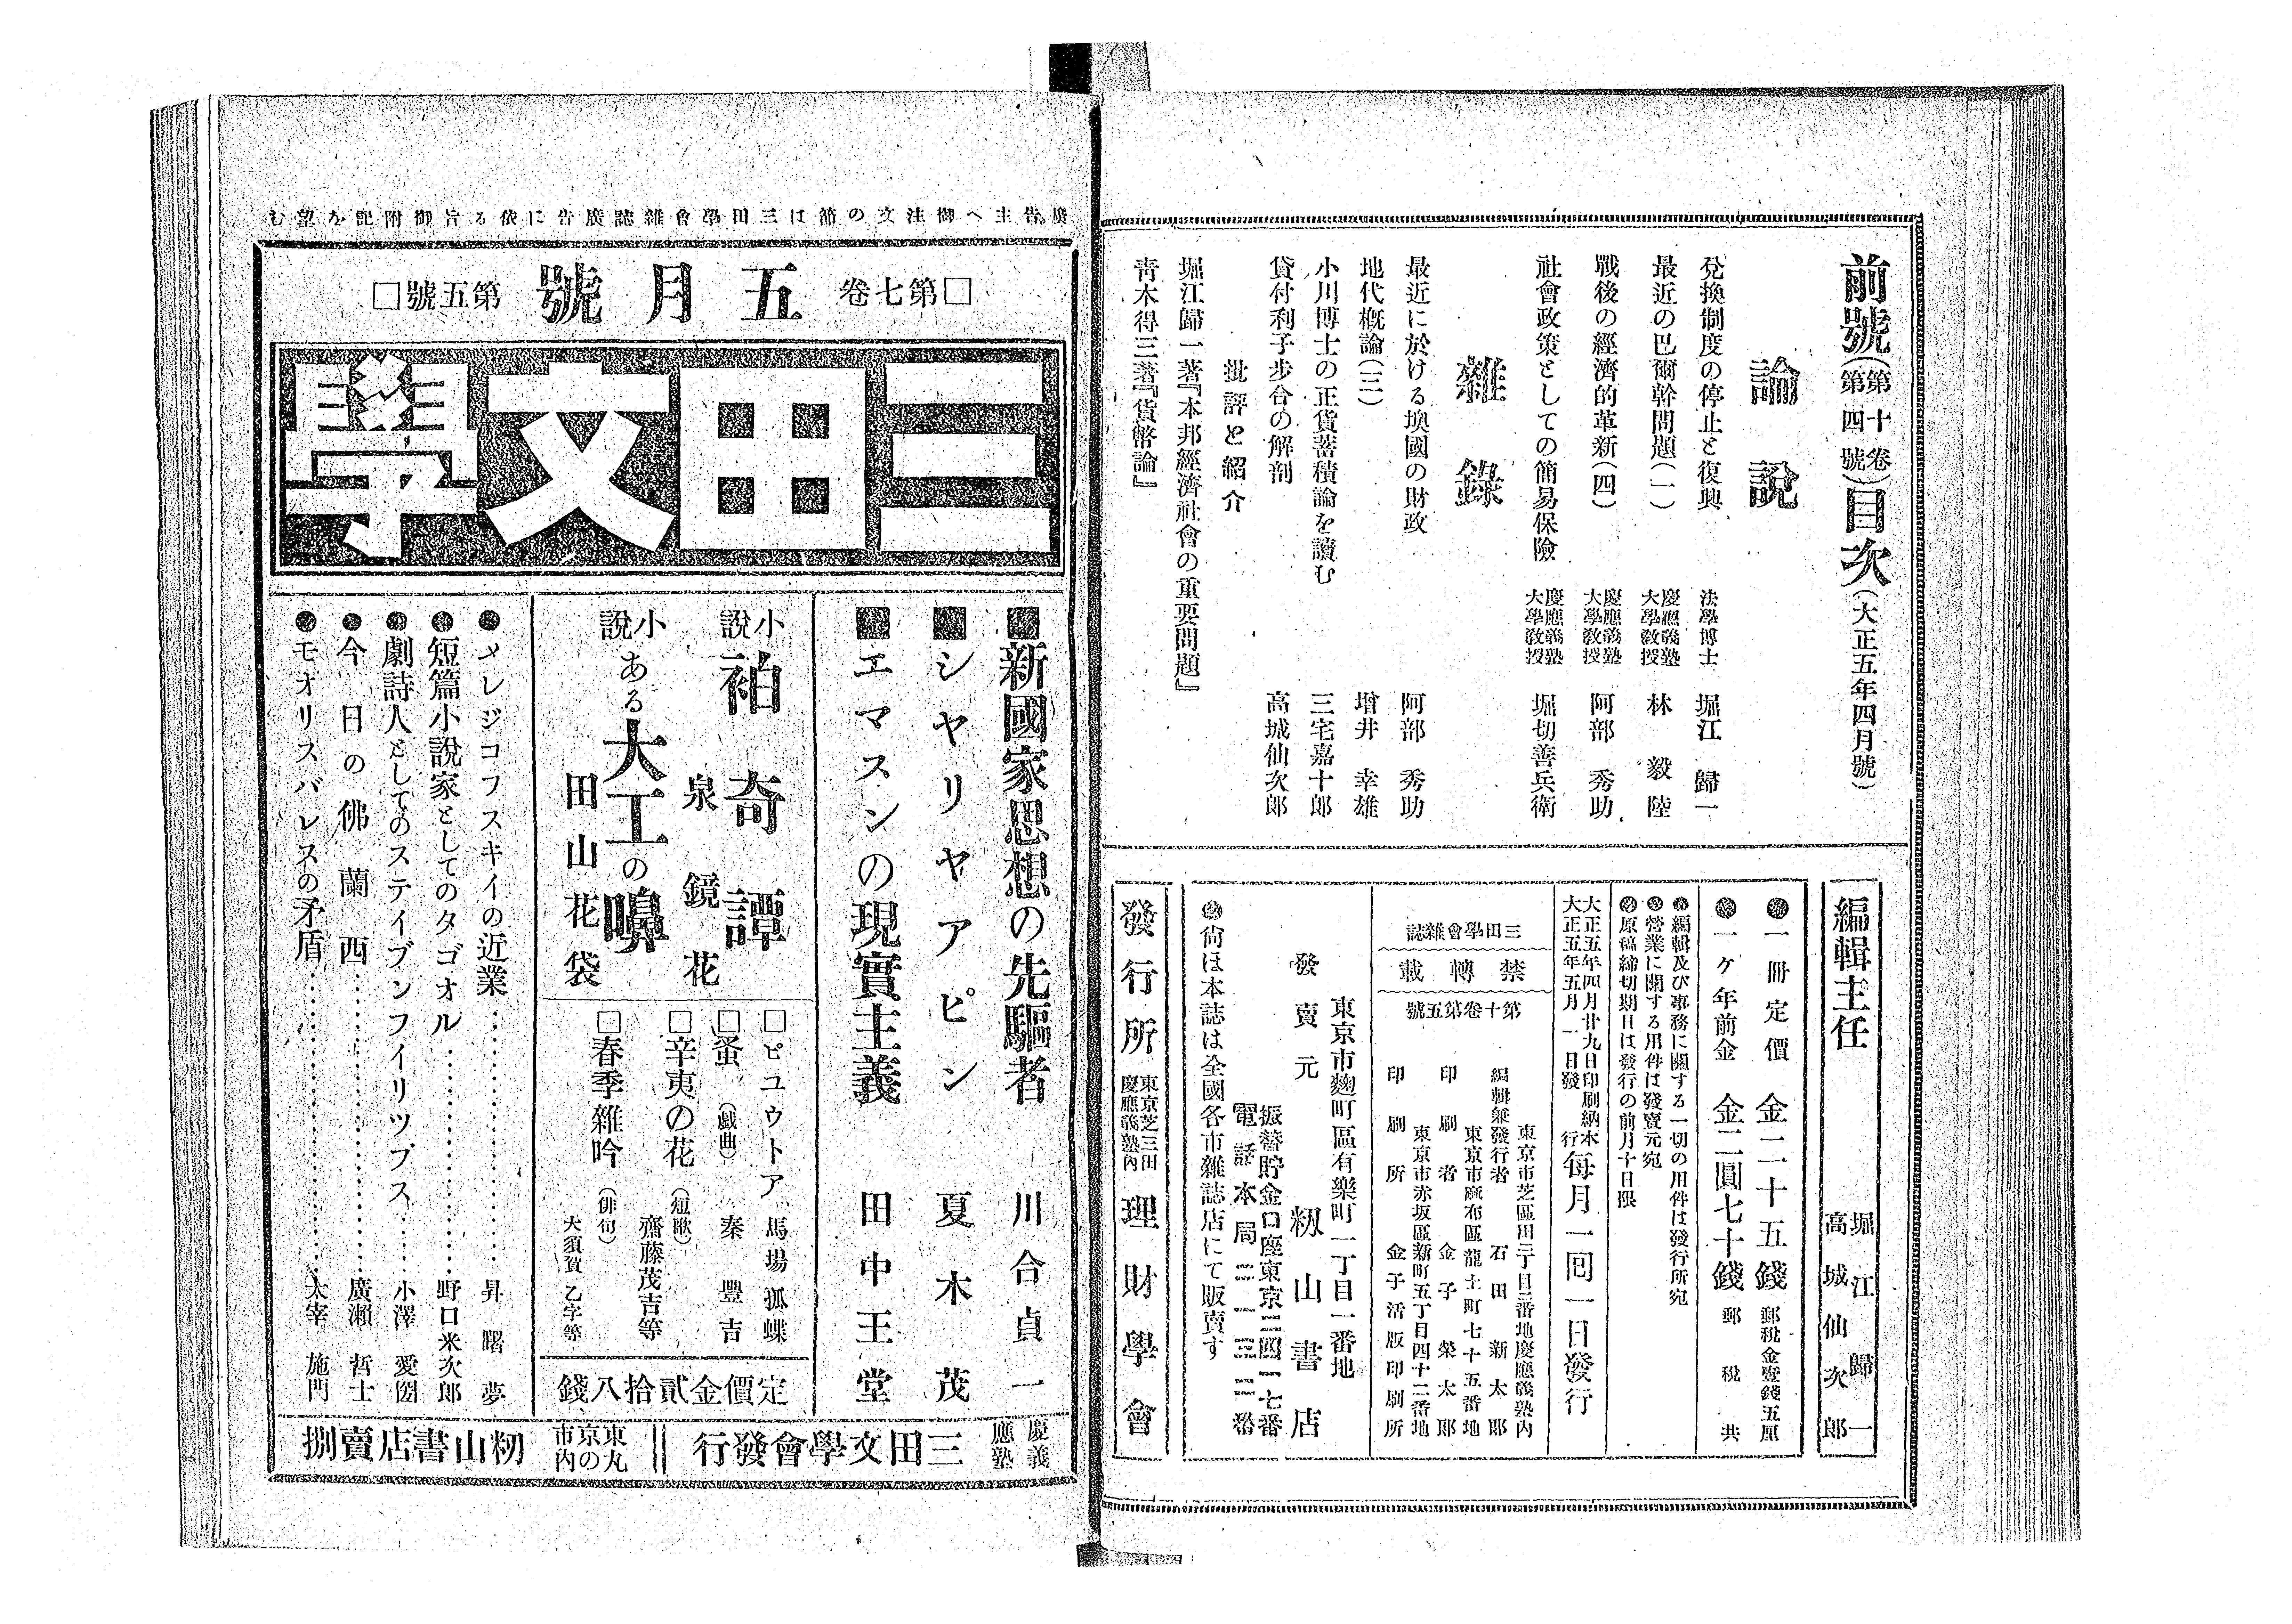 前號（第十卷第四號）目次（大正五年四月號）
論說
兌換制度の停止と復興 法學博士 堀江歸一
最近の巴爾幹問題（一） 慶應義塾大學敎授 林毅陸
戰後の經濟的革新（四） 慶應義塾大學敎授 阿部秀助
社會政策としての簡易保險 慶應義塾大學敎授 堀切善兵衞
雜錄
最近に於ける墺國の財政 阿部秀助
地代槪論（三） 增井幸雄
小川博士の正貨蓄積論を讀む 三宅嘉十郎
貸付利子步合の解剖 高城仙次郎
批評と紹介
堀江歸一著『本邦經濟社會の重要問題』
靑木得三著『貨幣論』
編輯主任 堀江歸一
高城仙次郎
●一冊定價 金二十五錢 郵稅金壹錢五厘
●一ケ年前金 金二圓七十錢 郵稅共
●編輯及び事務に關する一切の用件は發行所宛
●營業に關する用件は發賣元宛
●原稿締切期日は發行の前月十日限
大正五年四月廿九日印刷納本
大正五年五月一日發行
每月一回一日發行
三田學會雜誌
禁轉載
第十卷第五號
東京市芝區田三丁目二番地慶應義塾內
編輯兼發行者 石田新太郎
東京市麻布區龍土町七十五番地
印刷者 金子榮太郎
東京市赤坂區新町五丁目四十二番地
印刷所 金子活版印刷所
東京市麴町區有樂町一丁目一番地
發賣元 籾山書店
振替貯金口座東京二四一七番
電話本局
●尙ほ本誌は全國各市雜誌店にて販賣す
發行所 東京芝三田慶應義塾內 理財學會
廣告主へ御注文の節は三田學會雜誌廣告に依る旨御附記を望む
□第七卷 五月號 第五號□
三田文學
■新國家思想の先驅者 川合貞一
■シヤリヤアピン 夏木茂
■エマスンの現實主義 田中王堂
小說 袙奇譚 泉鏡花
小說 ある大工の嚊 田山花袋
□ピユウトア 馬場孤蝶
□蚤（戲曲） 秦豐吉
□辛夷の花（短歌） 齋藤茂吉等
□春季雜吟（俳句） 大須賀乙字等
定價金貳拾八錢
●メレジコフスキイの近業 昇曙夢
●短篇小說家としてのタゴオル 野口米次郎
●劇詩人としてのスティブンフイリツプス 小澤愛圀
●今日の佛蘭西 廣瀨哲士
●モオリスバレスの矛盾 太宰施門
慶應義塾 三田文學會發行 東京市丸の內 籾山書店賣捌